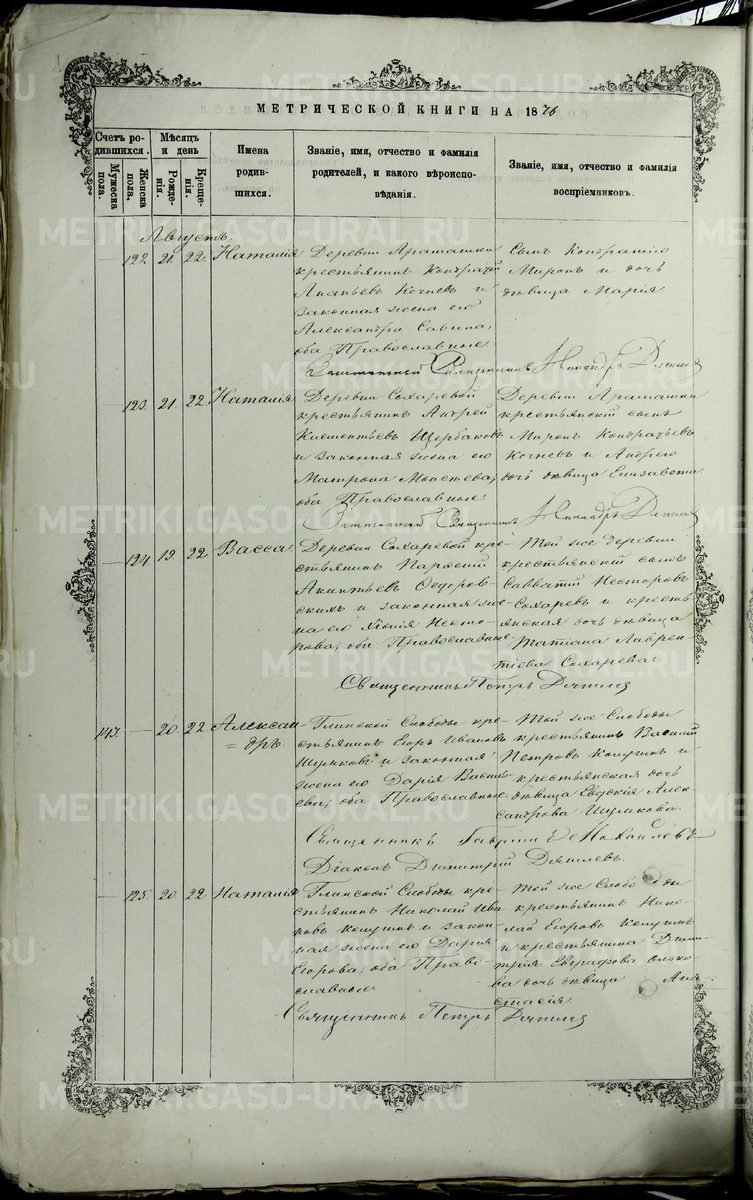 МЕТРИЧЕСКОЙ КНИГИ НА 1876
Счетъ родившихся.
Мужеска пола.
Женска пола.
Мѣсяцъ и день
Рожденія.
Крещенія.
Имена родившихся.
Званіе, имя, отчество и фамилія родителей, и какого вѣроисповѣданія.
Званіе, имя, отчество и фамилія воспріемниковъ.
Августъ.
122. 21. 22. Наталія
Деревни Арамашки
крестьянинъ Кондратій
Ананьевъ Кочневъ и
законная жена его
Александра Савина,
оба Православные
Сынъ Кондратія
Миронъ и дочь
дѣвица Марія
Заштатный Священникъ Никандръ
123. 21. 22. Наталія
Деревни Сохаревой
крестьянинъ Андрей
Климентьевъ Щербаковъ
и законная жена его
Матрона Моисѣева,
оба Православные
Деревни Арамашки
крестьянскій сынъ
Миронъ Кондратьевъ
Кочневъ и Андрея
дочь дѣвица Елизавета
Заштатный Священникъ Никандръ
124. 19. 22. Васса
Деревни Сохаревой кре-
стьянинъ Парѳеній
Акинтьевъ Ѳедоров-
скихъ и законная же-
на его Хіонія Несто-
рова, оба Православные
Той же деревни
крестьянскій сынъ
Савватій Несторовъ
Сохаревъ и кресть
янская дочь дѣвица
Татіана Лаврен-
тіева Сохарева
Священникъ Петръ
147. — 20. 22. Алексан-
=дръ
Глинской Слободы кре-
стьянинъ Егоръ Ивановъ
Шумковъ и законная
жена его Дарія Васи-
ева, оба Православные
Той же Слободы
крестьянинъ Василій
Петровъ Колунинъ и
крестьянская дочь
дѣвица Евдокія Алек
сандрова Шумкова
Священникъ Гавріилъ
Діаконъ Димитрій
125. 20. 22. Наталія
Глинской Слободы кре-
стьянинъ Николай Ива
новъ Колунинъ и закон-
ная жена его Дарія
Егорова, оба Право-
славные
Той же Слободы
крестьянинъ Нико-
лай Егоровъ Колунинъ
и крестьянина Дими-
трія Евграфова
ва дочь дѣвица Ана-
стасія
Священникъ Петръ
METRIKI.GASO-URAL.RU